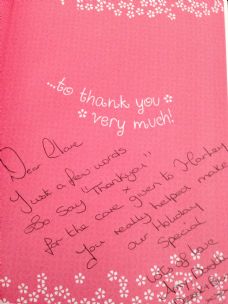 ...to thank you
very much!
Dear Clare
Just a few words
to say "Thankyou"
for the care given to Harley
You really helped make
our Holiday
Special
Lots of love